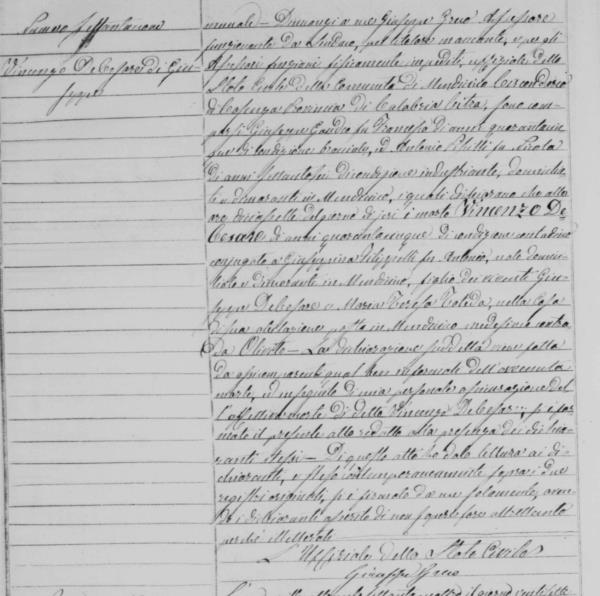 Numero Settantanove
Vincenzo De Cesare di Giu-
seppe
munale — Dinnanzi a me Giuseppe Greco Assessore
funzionante da Sindaco, pel titolare mancante, e per gli
Assessori funzioni fisicamente impediti, uffiziale dello
Stato Civile della Comunità di Mendicino Circondario
di Cosenza Provincia di Calabria Citra, sono com-
parsi Giuseppe Gaudio fu Francesco di anni quarantacin
que di condizione bracciale, ed Antonio Piletti fu Nicola
di anni settantasei di condizione industriante, domicilia-
ti e dimoranti in Mendicino, i quali dichiarano che alle
ore diciassette del giorno di jeri è morto Vincenzo De
Cesare di anni quarantacinque di condizione contadino
conjugato a Giuseppina Filippelli fu Antonio, nato domici-
liato e dimorante in Mendicino, figlio dei viventi Giu-
seppe De Cesare e Maria Teresa nella casa
di sua abitazione posta in Mendicino medesimo contra
da Oliveto — La dichiarazione suddetta viene fatta
da essi comparenti qual ben informati dell'avvenuta
morte, ed in seguito di una personale assicurazione del
l'effettiva morte di detto Vincenzo De Cesare; si è for
mato il presente atto redatto alla presenza dei dichia-
ranti stessi — Di questo atto ho dato lettura ai di-
chiaranti, e steso contemporaneamente sopra i due
registri originali, si è firmato da me solamente, aven
do i dichiaranti asserito di non saper fare altrettanto
perchè illetterati
L'Uffiziale dello Stato Civile
Giuseppe Greco